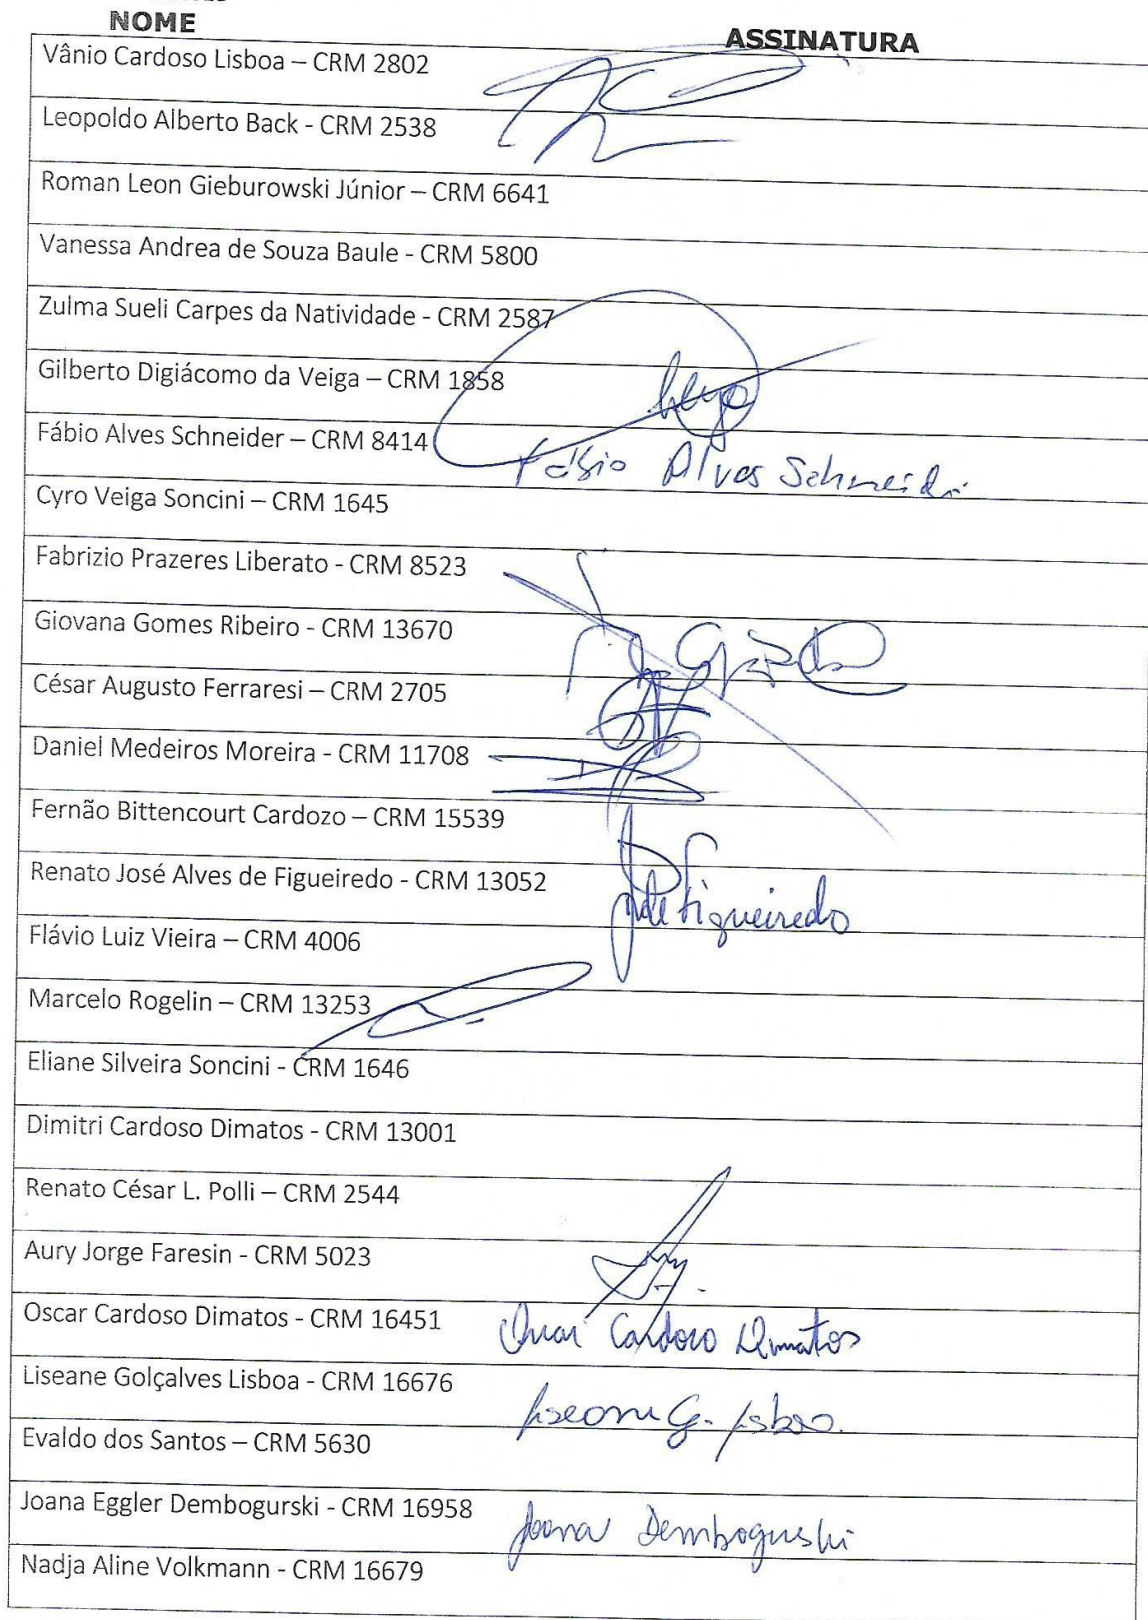 NOME
ASSINATURA
Vânio Cardoso Lisboa – CRM 2802
Leopoldo Alberto Back - CRM 2538
Roman Leon Gieburowski Júnior – CRM 6641
Vanessa Andrea de Souza Baule - CRM 5800
Zulma Sueli Carpes da Natividade - CRM 2587
Gilberto Digiácomo da Veiga – CRM 1858
Fábio Alves Schneider – CRM 8414
Fábio Alves Schneider
Cyro Veiga Soncini – CRM 1645
Fabrizio Prazeres Liberato - CRM 8523
Giovana Gomes Ribeiro - CRM 13670
César Augusto Ferraresi – CRM 2705
Daniel Medeiros Moreira - CRM 11708
Fernão Bittencourt Cardozo – CRM 15539
Renato José Alves de Figueiredo - CRM 13052
Figueiredo
Flávio Luiz Vieira – CRM 4006
Marcelo Rogelin – CRM 13253
Eliane Silveira Soncini - CRM 1646
Dimitri Cardoso Dimatos - CRM 13001
Renato César L. Polli – CRM 2544
Aury Jorge Faresin - CRM 5023
Oscar Cardoso Dimatos - CRM 16451
Oscar Cardoso Dimatos
Liseane Golçalves Lisboa - CRM 16676
Liseane G. Lisboa.
Evaldo dos Santos – CRM 5630
Joana Eggler Dembogurski - CRM 16958
Joana Dembogurski
Nadja Aline Volkmann - CRM 16679